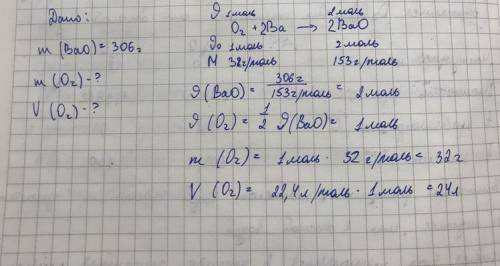 Дано:
m (BaO) = 306 г
m (O₂) - ?
V (O₂) - ?
ϑ 1 моль 2 моль
O₂ + 2Ba → 2BaO
ϑ₀ 1 моль 2 моль
M 32 г/моль 153 г/моль
ϑ (BaO) = 306 г / 153 г/моль = 2 моль
ϑ (O₂) = 1/2 ϑ (BaO) = 1 моль
m (O₂) = 1 моль · 32 г/моль = 32 г
V (O₂) = 22,4 л/моль · 1 моль = 24 л